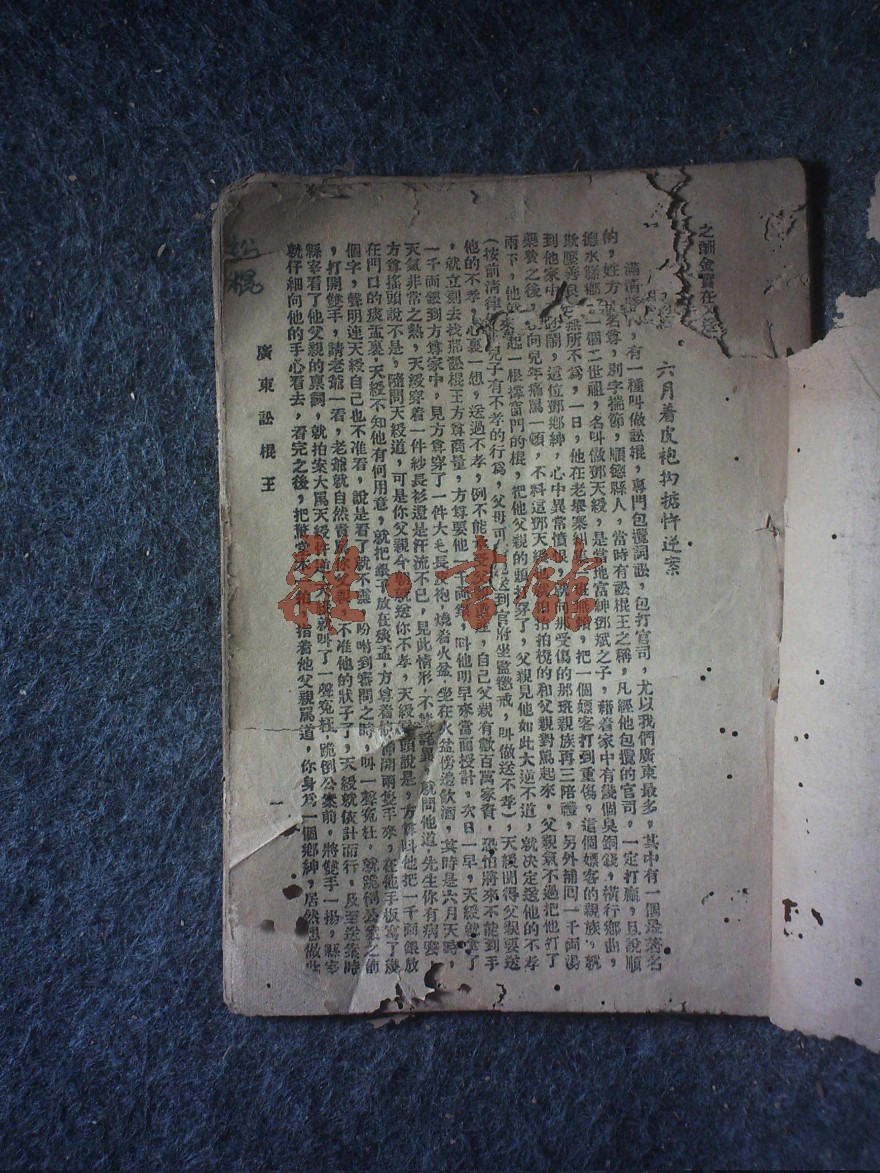 之酬金實在
六月着皮袍抅掂忤逆案
滿清時代,有一種叫做訟棍,專門包攬詞訟,包打官司,尤以我們廣東最多,其中有一個最著名
的,姓方名尊,別字揣節,順德縣人,當時有訟棍王之稱,凡經他包攬的官司,一定打贏,且說順
德水縣鄉一個二世祖,名叫做鄧天綬,是當地富紳鄧斌之子,藉着家中有幾個臭銅錢,橫行鄉曲,
欺壓善良無所不為,一日,他在老舉寨糾把一個嫖客打到重傷,這個嫖客的親族,就
到他家中鬧,這位鄧鄉紳,心中異常憤恨,就向那受傷的那班親族再三陪禮,另外補回一千両湯
藥費之後,向兒年痛罵一頓,不料這鄧天綬拍枱拍櫈的和父親對罵起來,父親氣不過把他打了
兩下,他起一根撑窗門的棍,把他父親的頭打穿了,父親見他如此大逆不道,就决定送他的不孝
(按前清律兒子有不孝的行為,父母可送到官府坐監懲戒,叫做送不孝),天綬聞得父親要送
他的不孝,心裏一想,送過不孝,例不能承受自己父親有數百萬家資,恐怕將來不能到手
,就立刻去找那訟棍王方尊商量,方尊要他一千両銀,叫他明早來當面授計,次日一早,天綬就拿了
一千両銀到方尊家中,見方尊穿了一件大毛長袍,燒着火盆,坐在火盆傍邊飲酒,其時是六月天時,
天氣非常之熱,天綬穿着一件紗長衫還是汗流不已,見此情形,不勝詫異,就問他道,先生你有病麼,
方尊搖頭說不是,隨問天綬道,可是你父親今朝就送你不孝,天綬頭說是,方尊叫他把一千両銀放
在門口的痰盂裏,天綬不知他有何用意,就把銀子放在痰盂,方尊着開兩隻手來,在他手板寫了幾
個字,聲明連天綬自己也不准看,說是看了就不靈,吩咐到審問之時,叫一聲冤枉,就跪倒公案之前
,打開雙手,請老爺一看,老爺就自然責罵你父親,不准他的狀子了,天綬就依計而行,及至送案時
縣宰看了他父親的禀詞,就拍案大罵天綬忤逆,天綬就叫了一聲冤枉,跪倒公案前,將雙手一揚,縣宰
就仔細向他的手心看去,看完之後,把驚堂木一拍,指着他父親罵道,你身為一個鄉紳,居然想做此
廣東訟棍王
一
訟棍